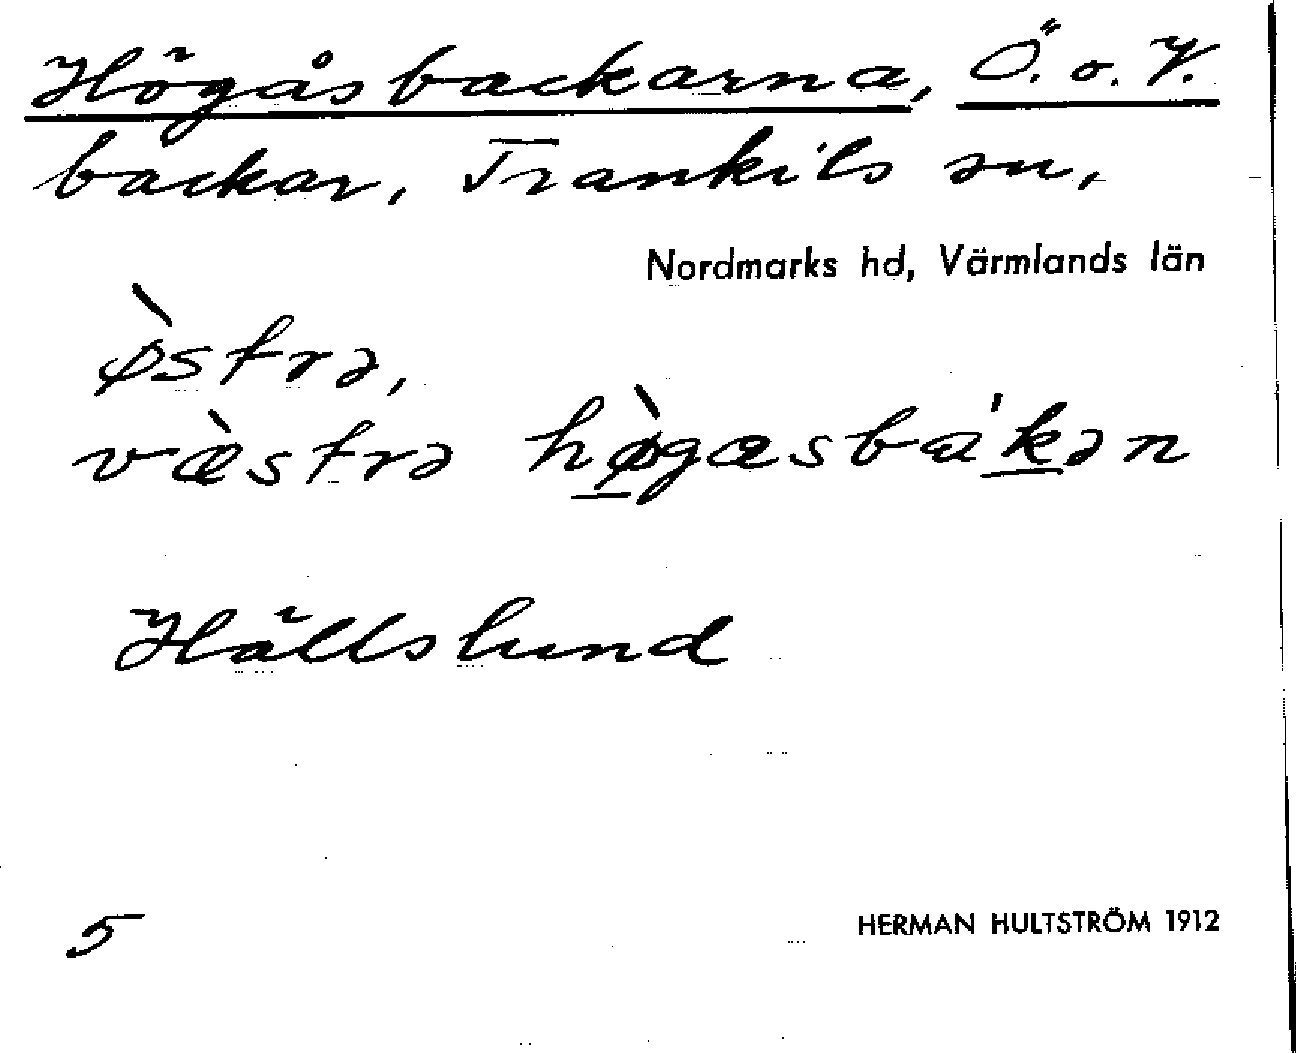 Högåsbackarna, Ö. o. V.
backar, Trankils sn,
Nordmarks hd, Värmlands län
ø̀strə,
væ̀strə hø̀gæsbákən
Hällslund
5
HERMAN HULTSTRÖM 1912